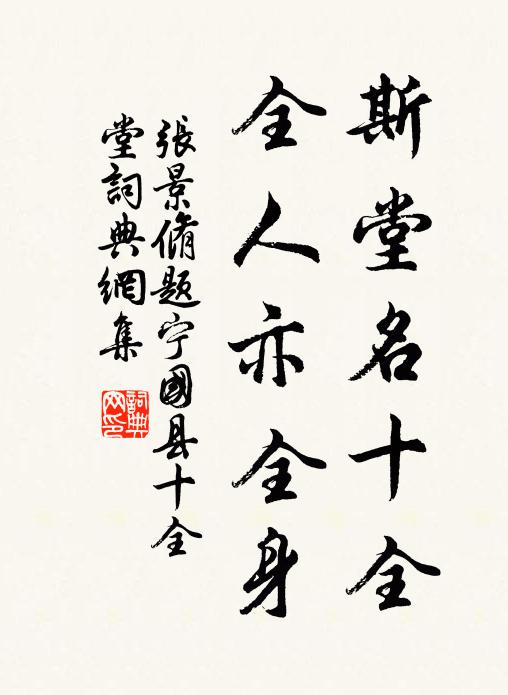 斯堂名十全
全人亦全身
張景脩题宁國县十全
堂詞典網集
詞典网印